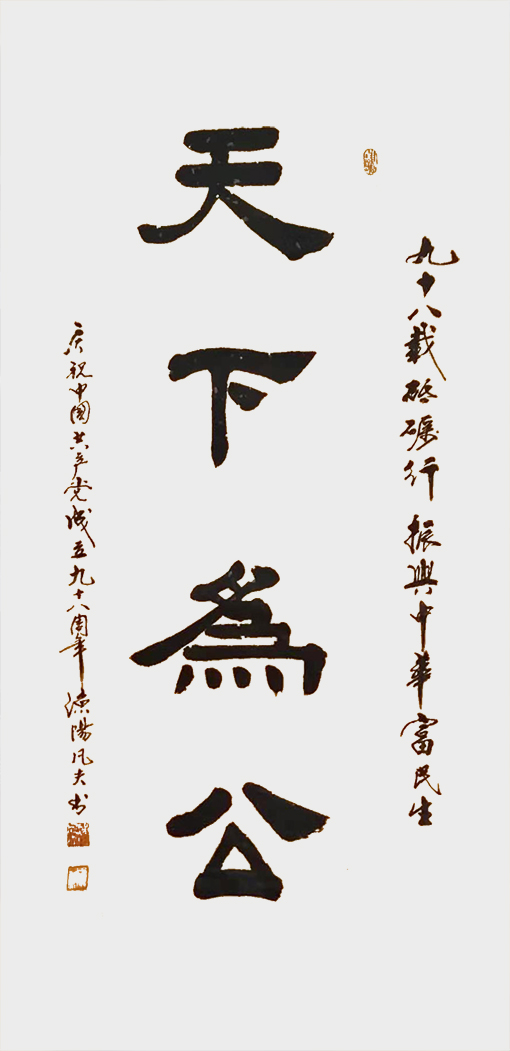 九十八载砥砺行 振興中華富民生
天下為公
庆祝中国共产党成立九十八周年 濂陽凡夫书